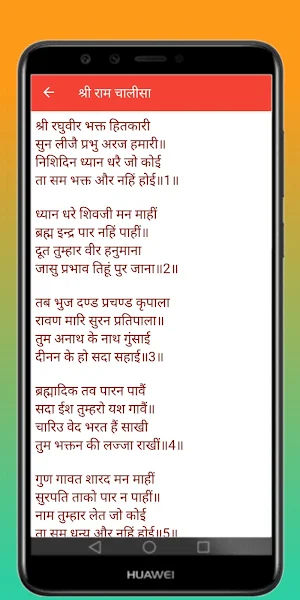 श्री राम चालीसा
श्री रघुवीर भक्त हितकारी
सुन लीजै प्रभु अरज हमारी॥
निशिदिन ध्यान धरै जो कोई
ता सम भक्त और नहिं होई॥1॥
ध्यान धरे शिवजी मन माहीं
ब्रह्म इन्द्र पार नहिं पाहीं॥
दूत तुम्हार वीर हनुमाना
जासु प्रभाव तिहूं पुर जाना॥2॥
तब भुज दण्ड प्रचण्ड कृपाला
रावण मारि सुरन प्रतिपाला॥
तुम अनाथ के नाथ गुंसाई
दीनन के हो सदा सहाई॥3॥
ब्रह्मादिक तव पारन पावैं
सदा ईश तुम्हरो यश गावैं॥
चारिउ वेद भरत हैं साखी
तुम भक्तन की लज्जा राखीं॥4॥
गुण गावत शारद मन माहीं
सुरपति ताको पार न पाहीं॥
नाम तुम्हार लेत जो कोई
ता सम धन्य और नहिं होई॥5॥
HUAWEI